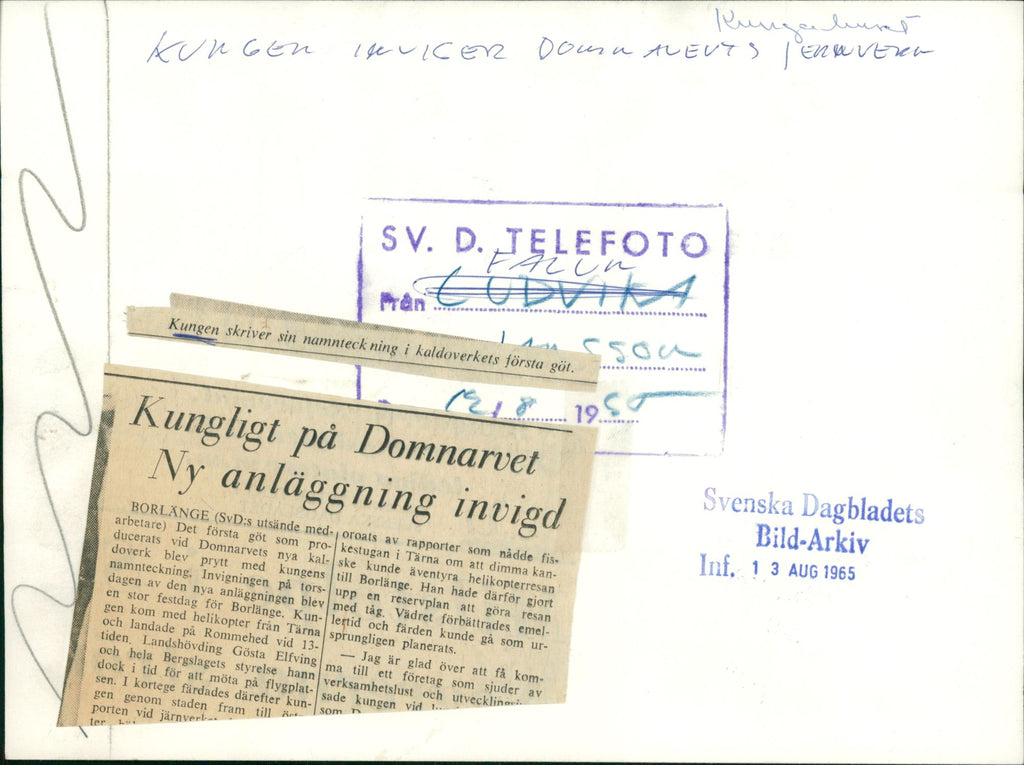 Kungahuset
KUNGEN INVIGER DOMNARVETS JERNVERK
SV. D. TELEFOTO
FALUN
Från LUDVIKA
12/8 1965
Kungen skriver sin namnteckning i kaldoverkets första göt.
Kungligt på Domnarvet
Ny anläggning invigd
BORLÄNGE (SvD:s utsände med-
arbetare) Det första göt som pro-
ducerats vid Domnarvets nya kal-
doverk blev prytt med kungens
namnteckning. Invigningen på tors-
dagen av den nya anläggningen blev
en stor festdag för Borlänge. Kun-
gen kom med helikopter från Tärna
och landade på Rommehed vid 13-
tiden. Landshövding Gösta Elfving
och hela Bergslagets styrelse hann
dock i tid för att möta på flygplat-
sen. I kortege färdades därefter kun-
gen genom staden fram till
porten vid
oroats av rapporter som nådde fis-
kestugan i Tärna om att dimma kan-
ske kunde äventyra helikopterresan
till Borlänge. Han hade därför gjort
upp en reservplan att göra resan
med tåg. Vädret förbättrades emel-
lertid och färden kunde gå som ur-
sprungligen planerats.
— Jag är glad över att få kom-
ma till ett företag som sjuder av
verksamhetslust och
sade kungen vid
som
Svenska Dagbladets
Bild-Arkiv
Inf. 13 AUG 1965